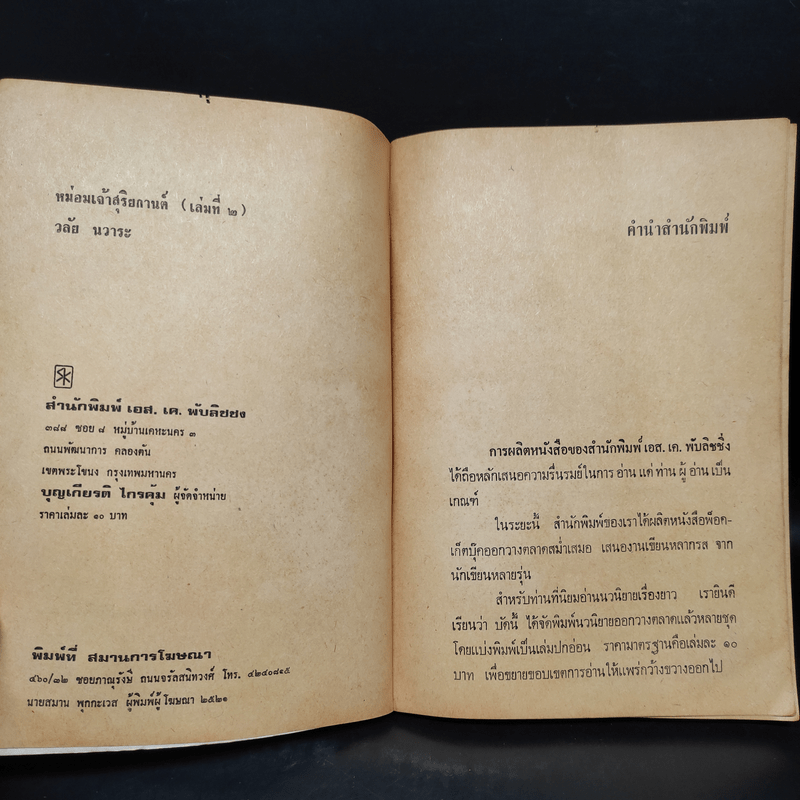 หม่อมเจ้าสุริยกานต์ (เล่มที่ ๒)
วลัย นวาระ
SK
สำนักพิมพ์ เอส. เค. พับลิชชิง
๓๘๘ ซอย ๘ หมู่บ้านเคหะนคร ๓
ถนนพัฒนาการ คลองตัน
เขตพระโขนง กรุงเทพมหานคร
บุญเกียรติ ไกรคุ้ม ผู้จัดจำหน่าย
ราคาเล่มละ ๑๐ บาท
พิมพ์ที่ สมานการโฆษณา
๔๖๐/๘๒ ซอยภาณุรังษี ถนนจรัลสนิทวงศ์ โทร. ๔๒๔๐๘๑๕
นายสมาน พุกกะเวส ผู้พิมพ์ผู้โฆษณา ๒๕๒๑
คำนำสำนักพิมพ์
การผลิตหนังสือของสำนักพิมพ์ เอส. เค. พับลิชชิ่ง
ได้ถือหลักเสนอความรื่นรมย์ในการ อ่าน แด่ ท่าน ผู้ อ่าน เป็น
เกณฑ์
ในระยะนี้ สำนักพิมพ์ของเราได้ผลิตหนังสือพ็อค-
เก็ตบุ๊คออกวางตลาดสม่ำเสมอ เสนองานเขียนหลากรส จาก
นักเขียนหลายรุ่น
สำหรับท่านที่นิยมอ่านนวนิยายเรื่องยาว เรายินดี
เรียนว่า บัดนี้ ได้จัดพิมพ์นวนิยายออกวางตลาดแล้วหลายชุด
โดยแบ่งพิมพ์เป็นเล่มปกอ่อน ราคามาตรฐานคือเล่มละ ๑๐
บาท เพื่อขยายขอบเขตการอ่านให้แพร่กว้างขวางออกไป